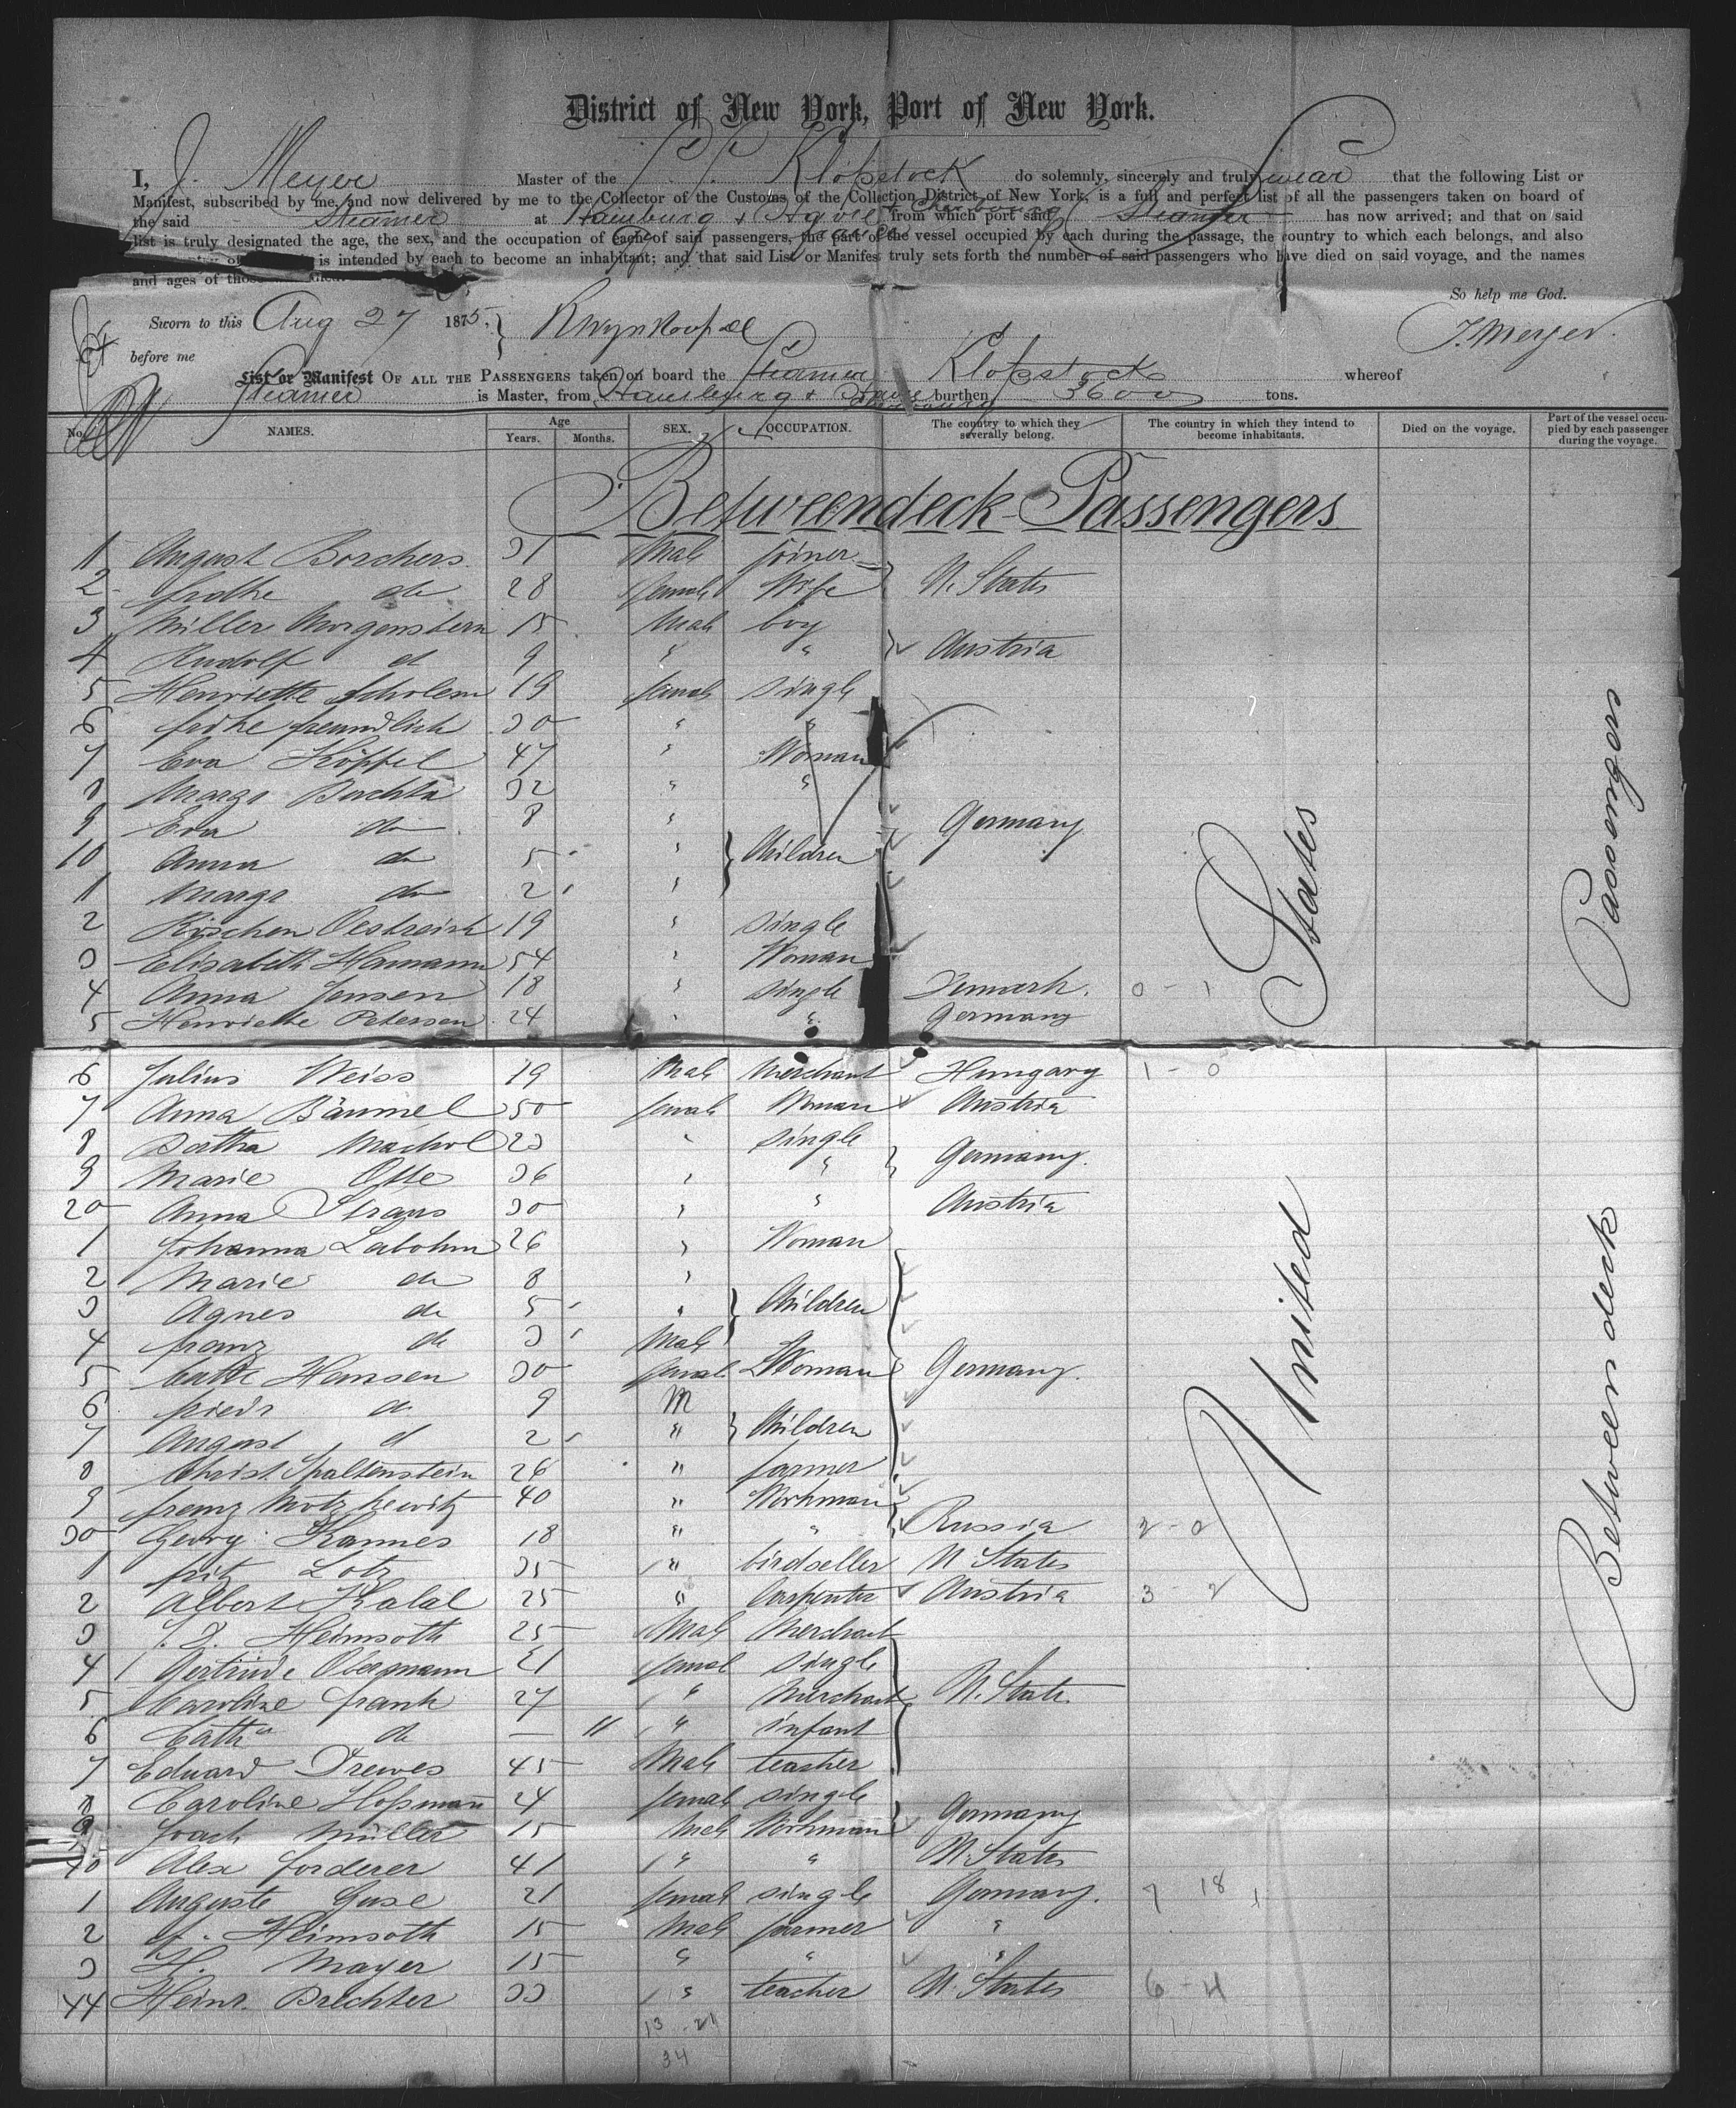 District of New York, Port of New York.
I, J. Meyer Master of the S. S. Klopstock do solemnly, sincerely and truly swear that the following List or
Manifest, subscribed by me, and now delivered by me to the Collector of the Customs of the Collection District of New York, is a full and perfect list of all the passengers taken on board of
the said Steamer at Hamburg & Havre & Cherbourg from which port said Steamer has now arrived; and that on said
list is truly designated the age, the sex, and the occupation of each of said passengers, the part of the vessel occupied by each during the passage, the country to which each belongs, and also
is intended by each to become an inhabitant; and that said List or Manifest truly sets forth the number of said passengers who have died on said voyage, and the names
and ages of those
So help me God.
Sworn to this Aug 27 1875.
J. Meyer.
before me
List or Manifest OF ALL THE PASSENGERS taken on board the Steamer Klopstock whereof
is Master, from Hamburg & Havre Cherbourg burthen 3600 tons.
No. NAMES. Age Years. Months. SEX. OCCUPATION. The country to which they severally belong. The country in which they intend to become inhabitants. Died on the voyage. Part of the vessel occupied by each passenger during the voyage.
Betweendeck Passengers
1 August Borchers 31 Male joiner
2 Fridke do 28 female Wife U. States
3 Miller Morgenstern 15 Male boy
4 Rudolf d 9 " " Austria
5 Henriette Scholem 19 female single
6 fridke freundlich 30 " "
7 Eva Köppel 47 " Woman
8 Margr Buchta 32 " "
9 Eva do 8 " Germany
10 Anna do 5 " Children
1 Margr do 2 "
2 Röschen Oestreich 19 " single
3 Elisabeth Hamann 54 " Woman
4 Anna Jensen 18 " single Denmark. 0 - 1
5 Henriette Petersen 24 " " Germany
6 Julius Weiss 19 Male Merchant Hungary 1 - 0
7 Anna Bäumel 50 female Woman Austria
8 Bertha Machol 23 " single
9 Marie Otte 36 " " Germany.
20 Anna Straus 30 " " Austria
1 Johanna Labohm 26 " Woman
2 Marie do 8 "
3 Agnes do 5 " Children
4 franz do 3 Male
5 Cathe Hansen 30 female Woman Germany.
6 friedr do 9 M
7 August d 2 " Children
8 Christ. Spaltenstein 26 " farmer
9 franz Motzkewitz 40 " Workman
30 Georg Kannes 18 " " Russia 2 - 0
1 fritz Lotz 35 " birdseller U States
2 Albert Kalal 25 " Carpenter Austria 3 - 2
3 Heimsoth 25 Male Merchant
4 Gertrude Obermann 21 female single
5 Caroline frank 27 " Merchant U. State.
6 Cath do — 11 " infant
7 Eduard Drewes 45 Male teacher
8 Caroline Hoffmann 24 female single
9 Joach Müller 15 Male Workman Germany
40 Alex Forderer 41 " " U. States
1 Auguste Guse 21 female single Germany. 7 18 1
2 f. Heimsoth 15 Male farmer "
3 H. Mayer 15 " " "
44 Heinr. Brechter 33 " teacher U. States 6 - 4
13 - 21
34
United States
Between deck Passengers